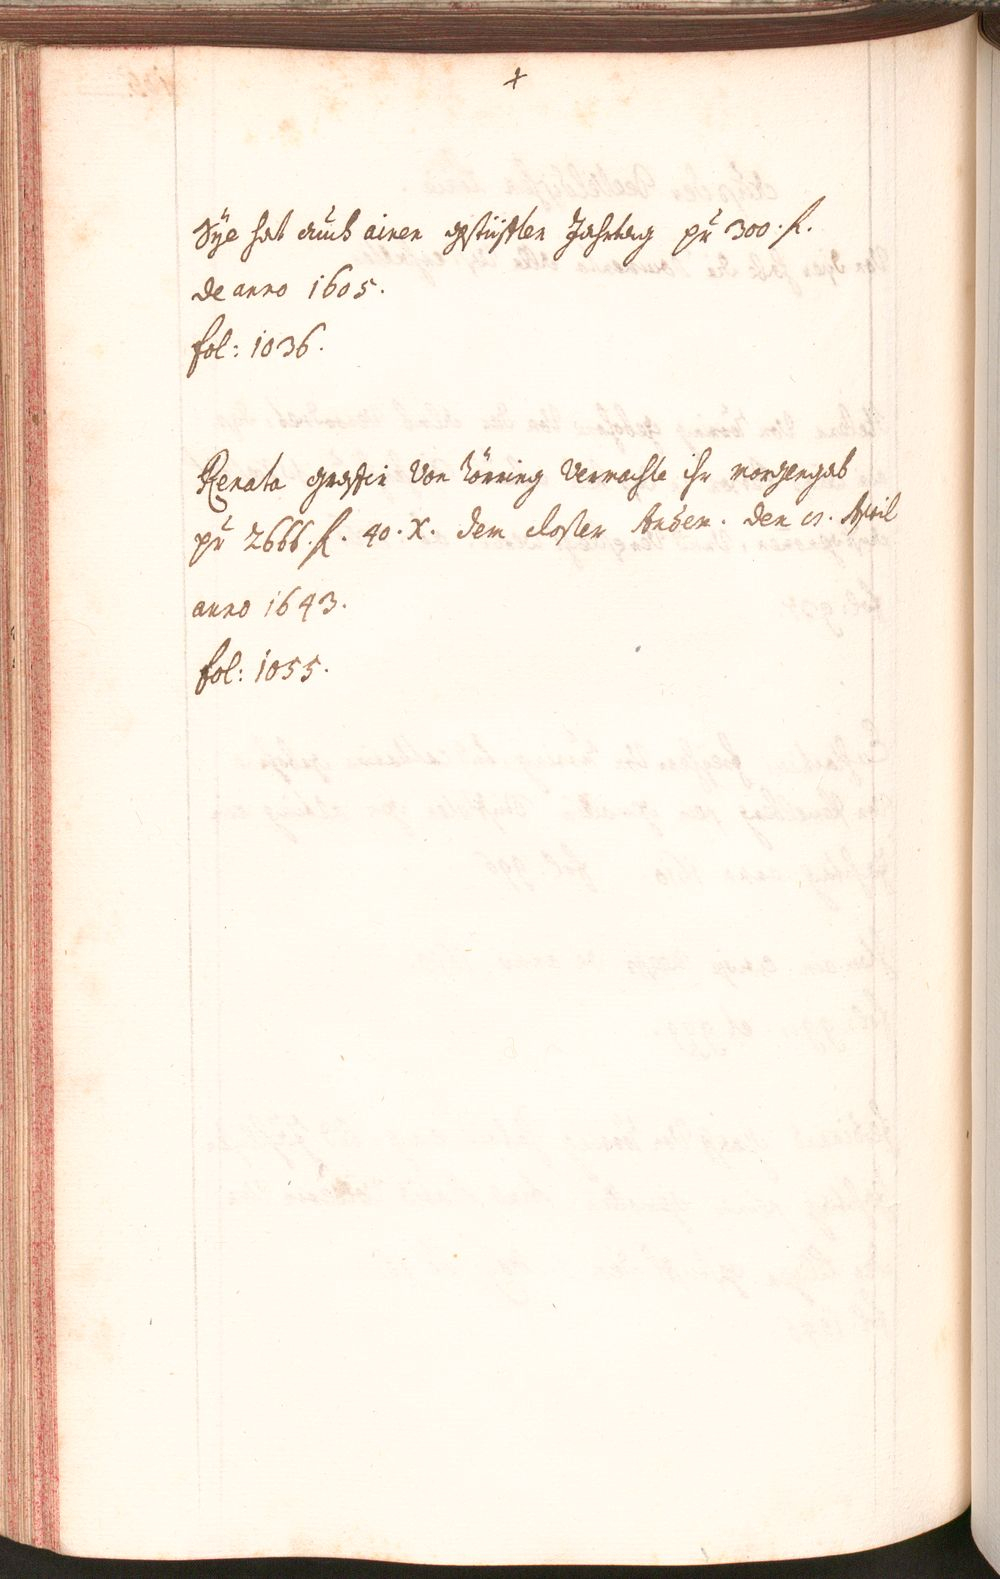 +
Sÿe hat auch ainen gestüfften Jahrtag pr 300. fl.
de anno 1605.
fol: 1036.
Renata gräfin von Törring vermachte ihr morgengab
pr 2666. fl. 40. X. dem closter den April
anno 1643.
fol: 1055.